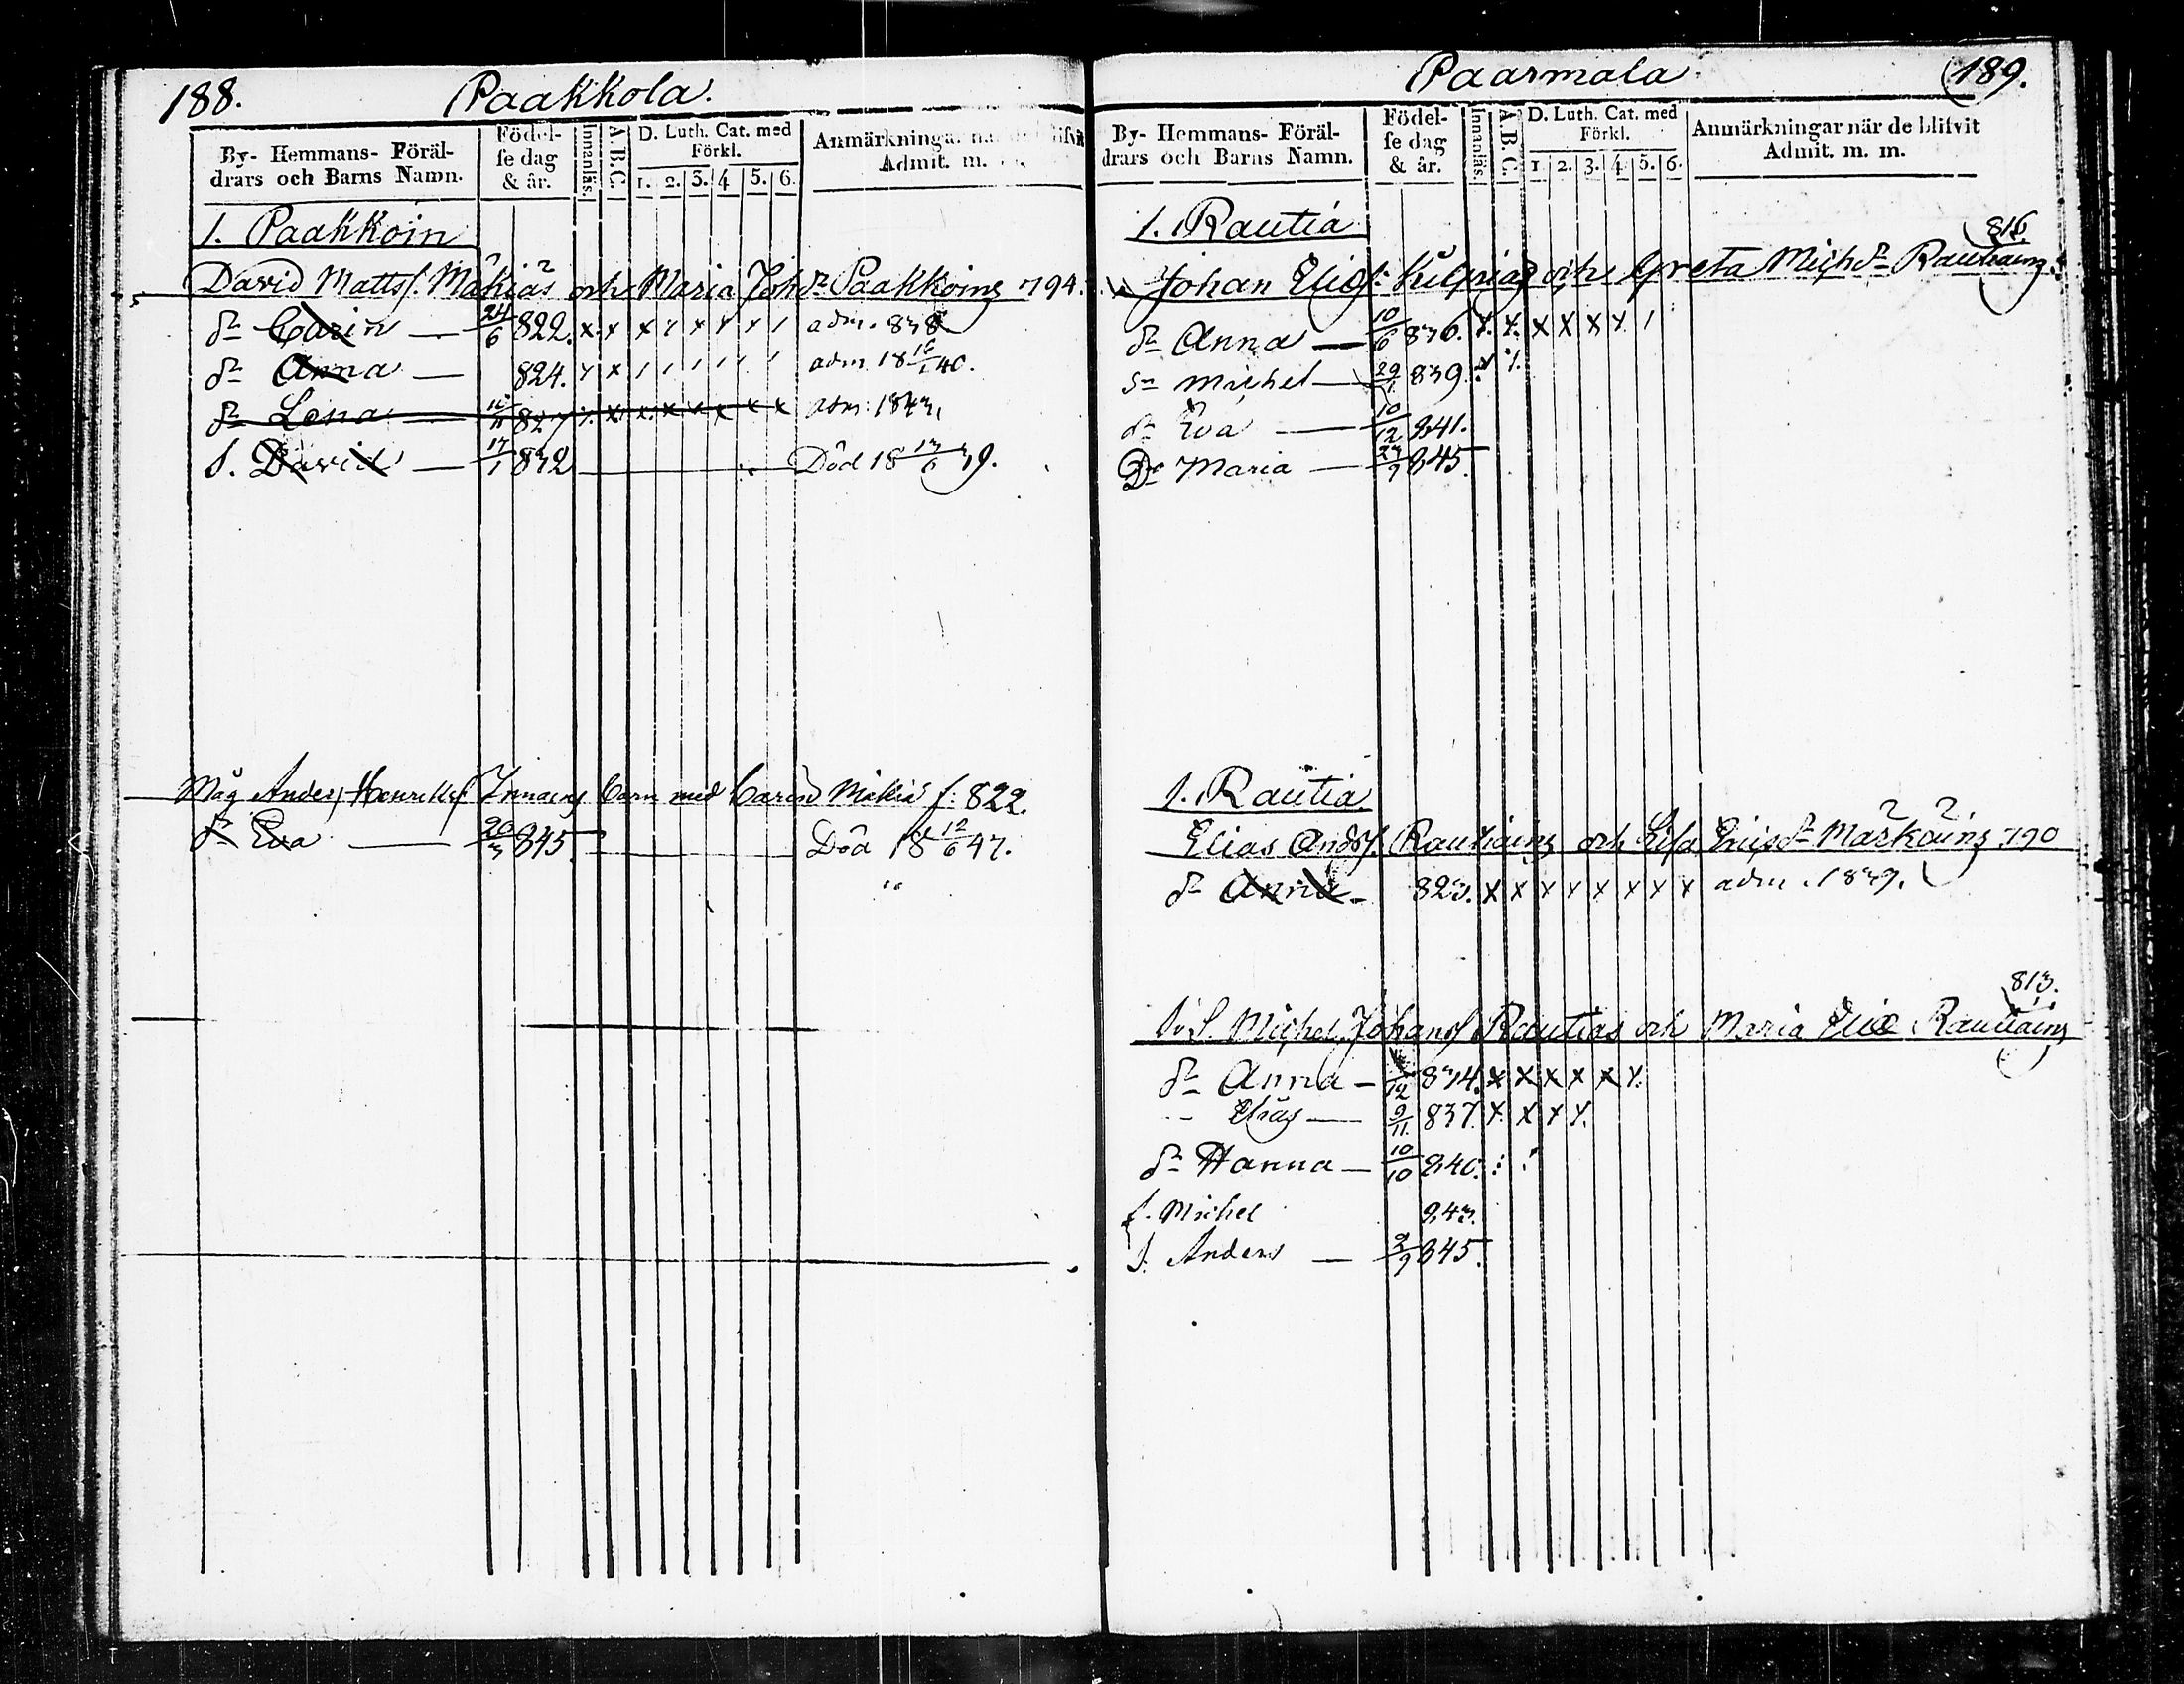 188. Paakkola.
By- Hemmans- Föräl-
drars och Barns Namn.
Födel-
se dag
& år.
Innanläs.
A.B.C.
D. Luth. Cat. med
Förkl.
1. 2. 3. 4 5. 6.
Anmärkningar
Admit. m.
1. Paakkoin
David Matts. Mäkiäs och Maria Joh dr Paakkoing 794.
dr Carin — 24/6 822. x x x x x x x 1 adm. 838
dr Anna — 824. x x 1 1 1 1 1 1 adm 18 /1 40.
dr Lena 827 x x x x x x x x adm. 1843.
S. David — 17/1 832 Död 18 /6 39.
Måg Anders Henrikss barn med Carin Mäkiä f: 822.
dr Eva — 20/3 845. Död 18 12/6 47.
Paarmala 189.
By- Hemmans- Föräl-
drars och Barns Namn.
Födel-
se dag
& år.
Innanläs.
A.B.C.
D. Luth. Cat. med
Förkl.
1. 2. 3. 4 5. 6.
Anmärkningar när de blifvit
Admit. m. m.
1. Rautia
816.
Johan Elias: och Greta Mich dr Rautiaing.
dr Anna — 10/6 836. x. x. x x x x 1
sn Michel — 29/1 839. x x
dr Eva — 10/12 841.
Dr Maria — 23/9 845.
1. Rautia
Elias Ands. Rautiaing och Lisa dr 790
dr Anna — 823. x x x x x x x x adm. 1839.
813.
S. Michel Johans Rautias och Maria Elia Rautiaing
dr Anna — /12 834. x x x x x x.
Elias — 9/11. 837. x. x x x.
dr Hanna — 10/10 840.
s. Michel 843.
S. Anders — 2/9 845.